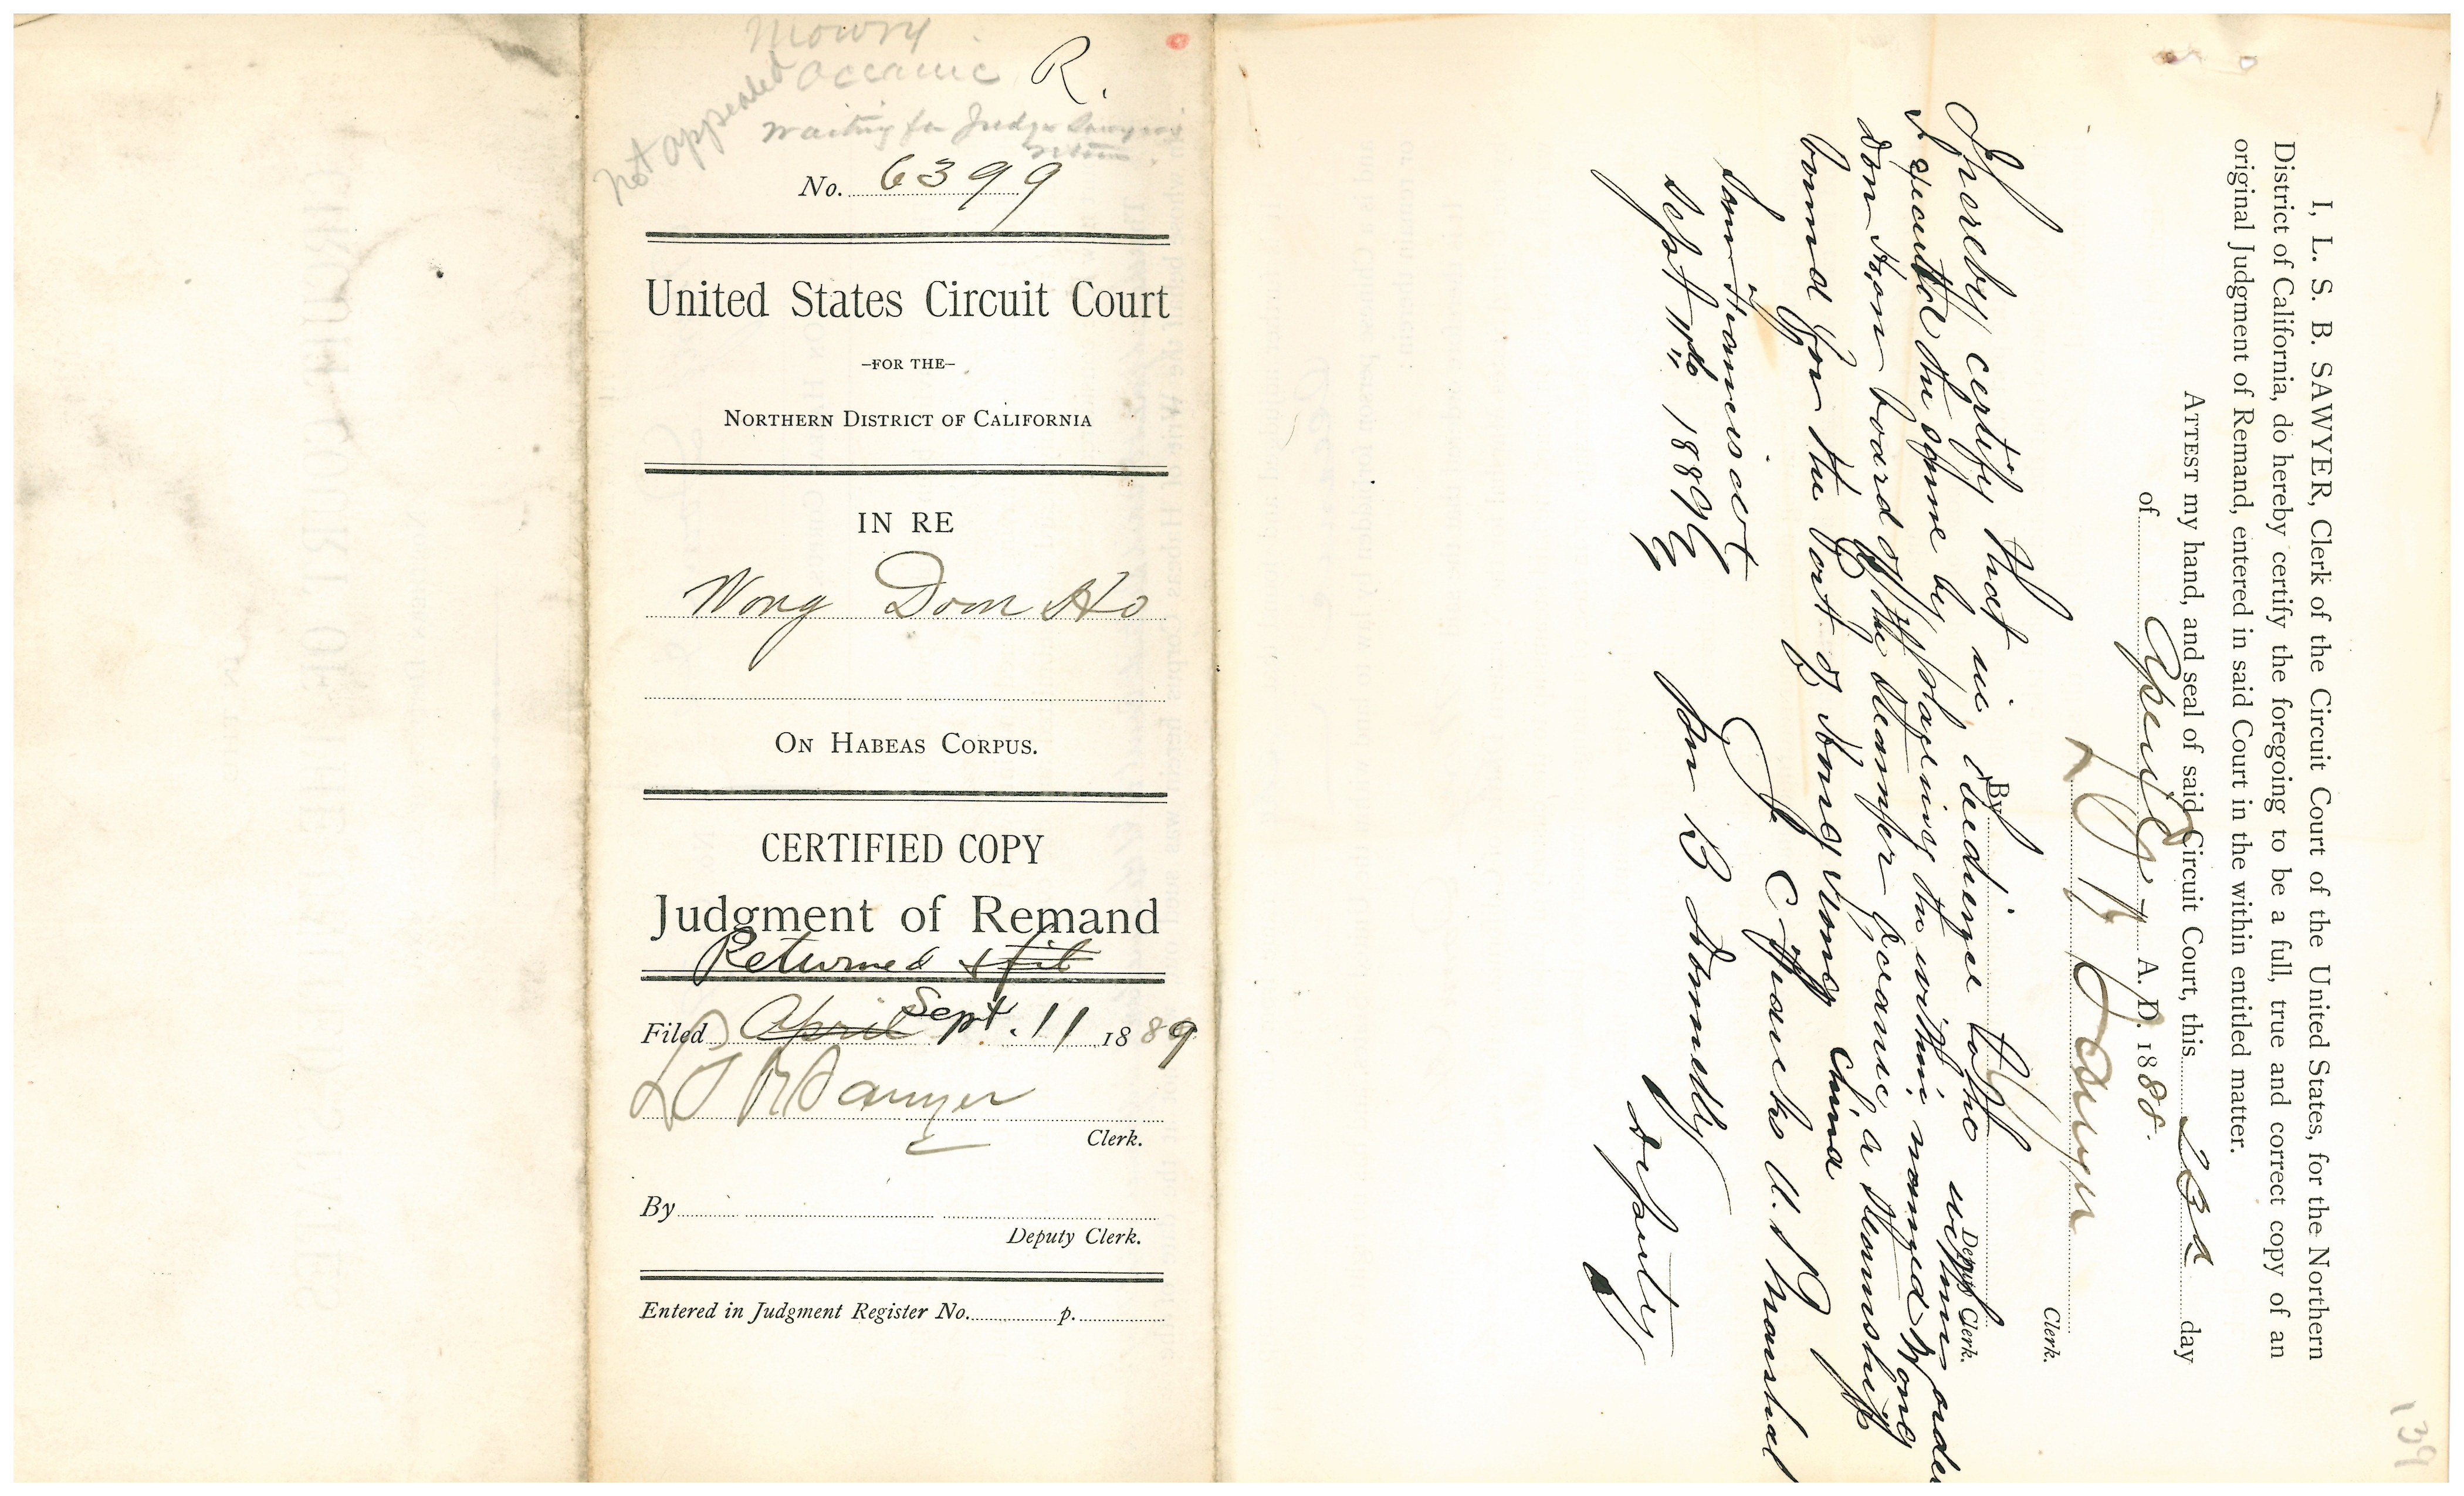 Mowry
Oceanic R.
not appealed
Waiting for Judge Sawyer's
return.
No. 6399
United States Circuit Court
–FOR THE–
NORTHERN DISTRICT OF CALIFORNIA
IN RE
Wong Don Ho
ON HABEAS CORPUS.
CERTIFIED COPY
Judgment of Remand
Returned & fil
Filed April Sept. 11 1889
L S B Sawyer
Clerk.
By
Deputy Clerk.
Entered in Judgment Register No. p.
I, L. S. B. SAWYER, Clerk of the Circuit Court of the United States, for the Northern
District of California, do hereby certify the foregoing to be a full, true and correct copy of an
original Judgment of Remand, entered in said Court in the within entitled matter.
ATTEST my hand, and seal of said Circuit Court, this 23d day
of April A. D. 1888.
L S B Sawyer
Clerk.
By
Deputy Clerk.
I hereby certify that in obedience to the within order
I executed the same by placing the within named Wong
Don Ho on board of the steamer Oceanic, a steamship
bound for the Port of Hong Kong China
San Francisco J C Franks U. S Marshal
Sept 11th 1889 Jon B Donnelly
Deputy
139